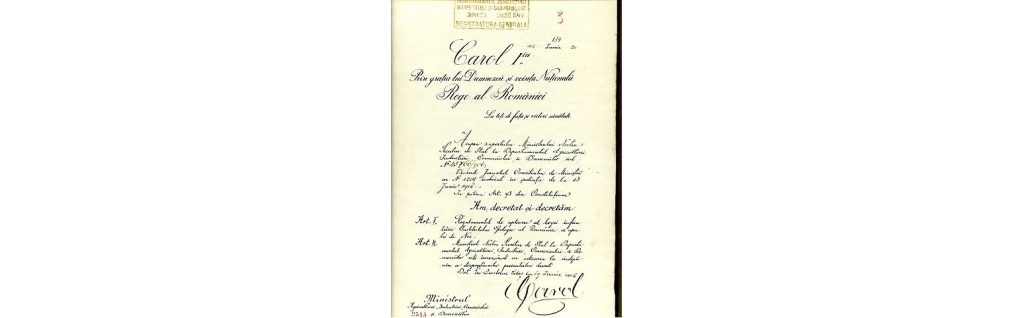 REGISTRATURA GENERALA
3
Carol I.iu
Prin grația lui Dumnezeu și voința Națională
Rege al României
La toți de față și viitori sănătate.
Asupra raportului Ministrului Nostru
Secretar de Stat la Departamentul Agriculturei
Industriei, Comerciului și Domeniilor sub
Văzând Jurnalul Consiliului de Miniștri
cu No 1209 încheiat în ședința de la 13
Junie 1906
În puterea Art. 93 din Constituțiune
Am decretat și decretăm
Art. I. Regulamentul de aplicare al legei înfiin-
țărei Institutului Geologic al României e apro-
bat de Noi.
Art. II. Ministrul Nostru Secretar de Stat la Departa-
mentul Agriculturei, Industriei, Comerciului și Do-
meniilor este însărcinat cu aducerea la îndepli-
nire a dispozițiunilor prezentului decret
Dat în Castelul Peleș la 19 Junie 1906
Carol
Ministrul
Agriculturei, Industriei, Comerciului
și Domeniilor